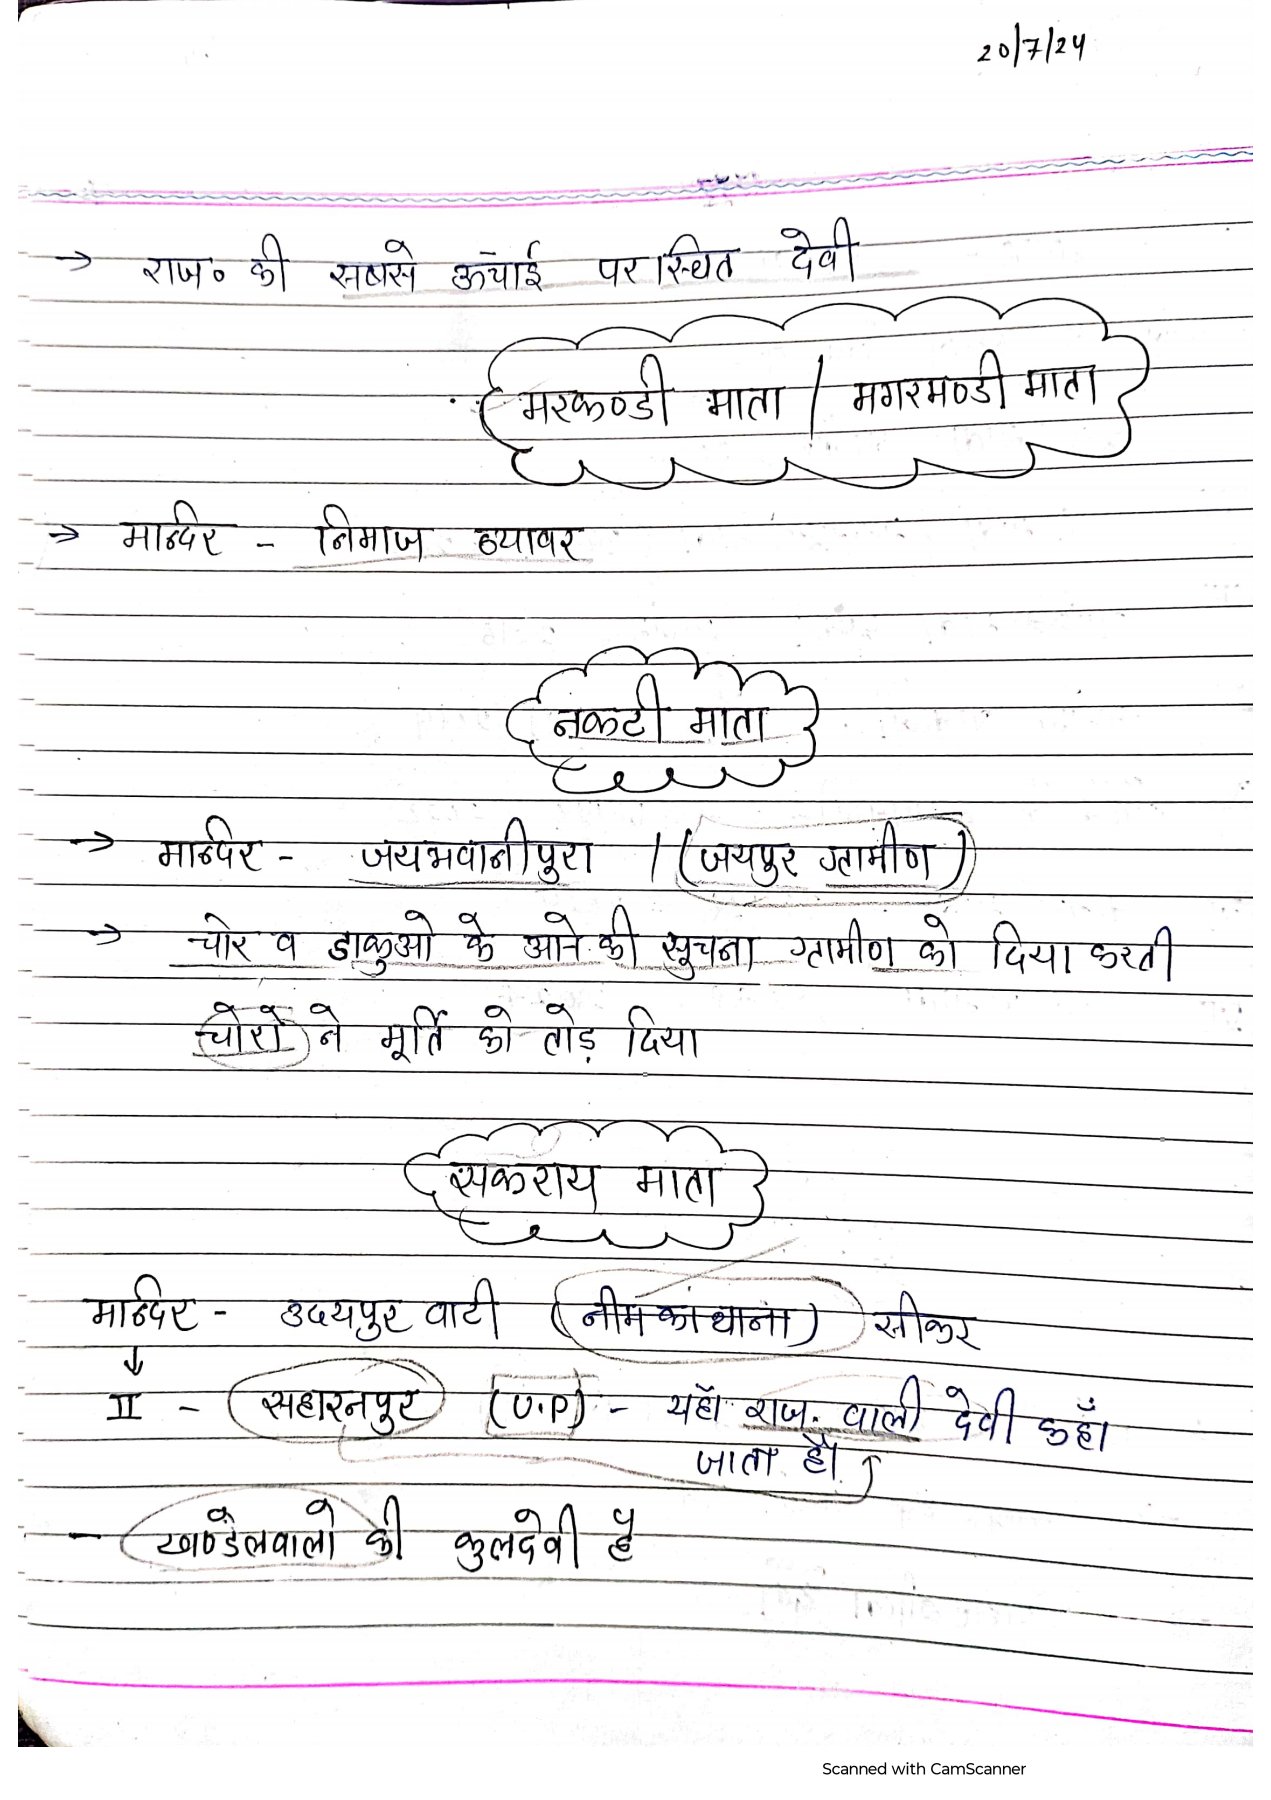 20/7/24
→ राज० की सबसे ऊँचाई पर स्थित देवी
मरकण्डी माता / मगरमण्डी माता
→ मान्दिर - निमाज ब्यावर
नकटी माता
→ मान्दिर - जयभवानीपुरा / (जयपुर ग्रामीण)
→ चोर व डाकुओ के आने की सूचना ग्रामीण को दिया करती
चोरों ने मूर्ति को तोड़ दिया
सकराय माता
मान्दिर - उदयपुर वाटी (नीम का थाना) सीकर
↓
II - सहारनपुर (U.P) - यहाँ राज. वाली देवी कहाँ
जाता है।
- खण्डेलवालो की कुलदेवी है
Scanned with CamScanner